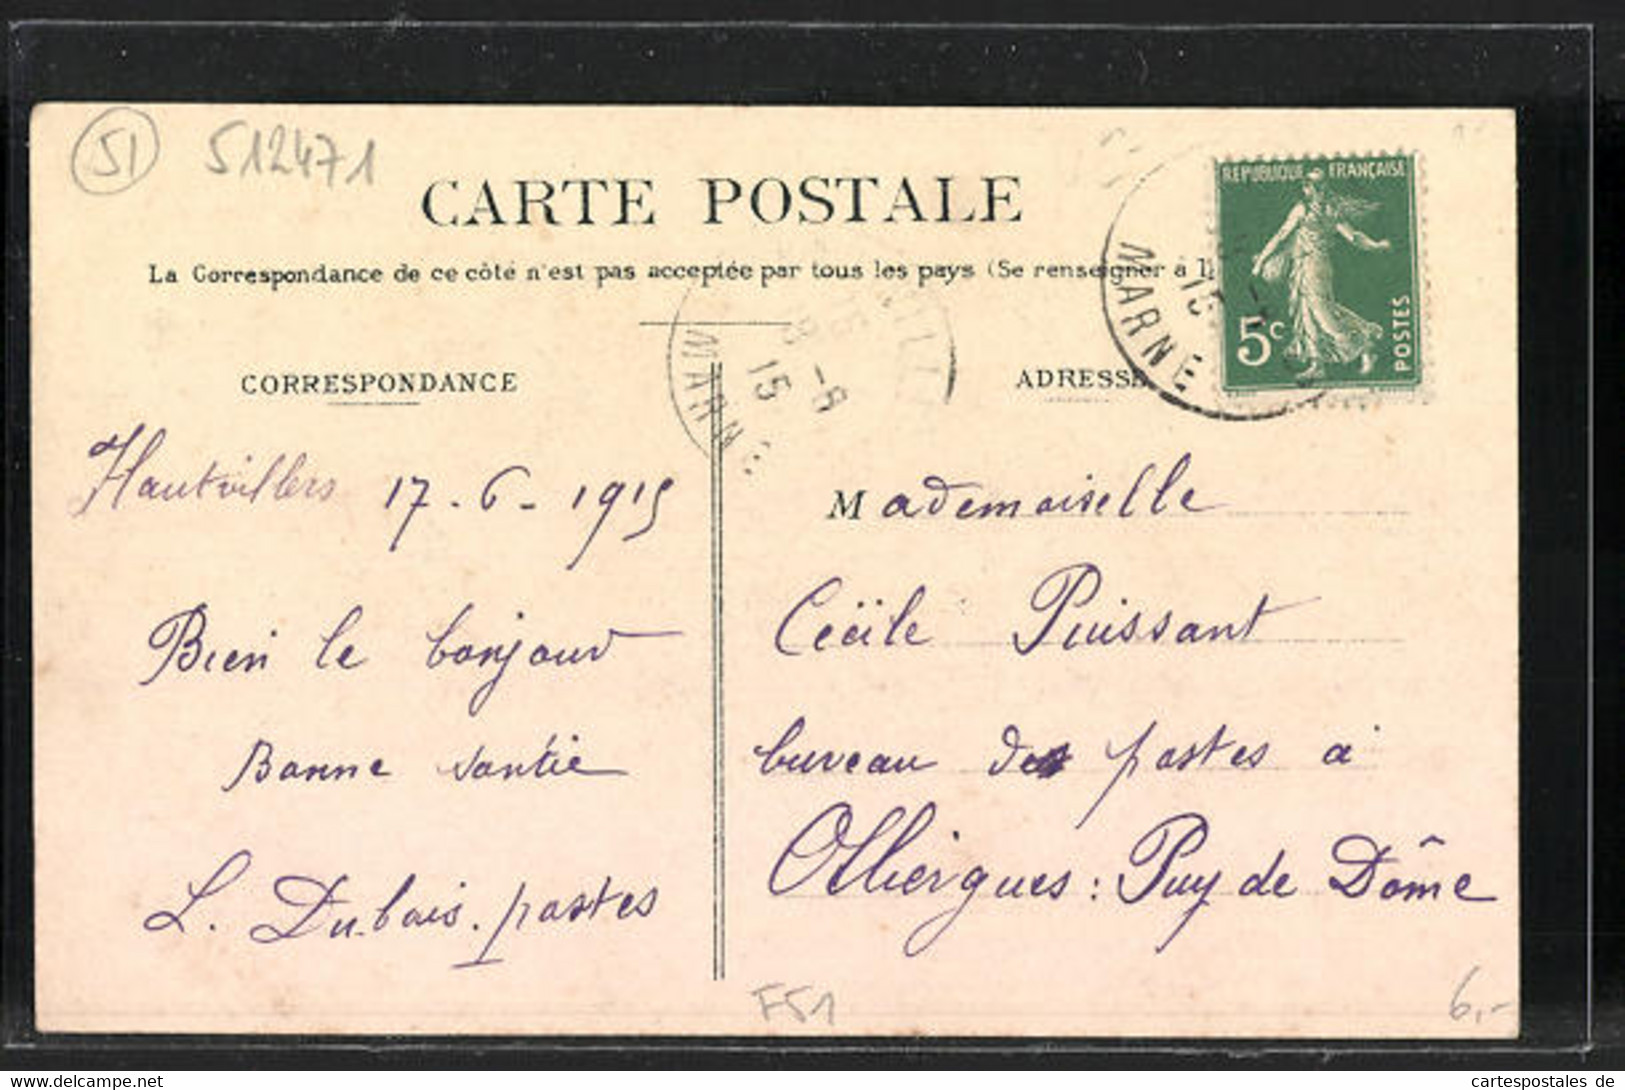 51 512471
CARTE POSTALE
La Correspondance de ce côté n'est pas acceptée par tous les pays (Se renseigner à l
REPUBLIQUE FRANÇAISE
5c
POSTES
MARNE
15
MARNE
15 8-6
CORRESPONDANCE
ADRESSE
Hautvillers 17-6-1915
Bien le bonjour
Bonne santie
L. Dubois. postes
Mademoiselle
Cécile Puissant
bureau des postes à
Olliergues: Puy de Dôme
F51
6,-
cartespostales de